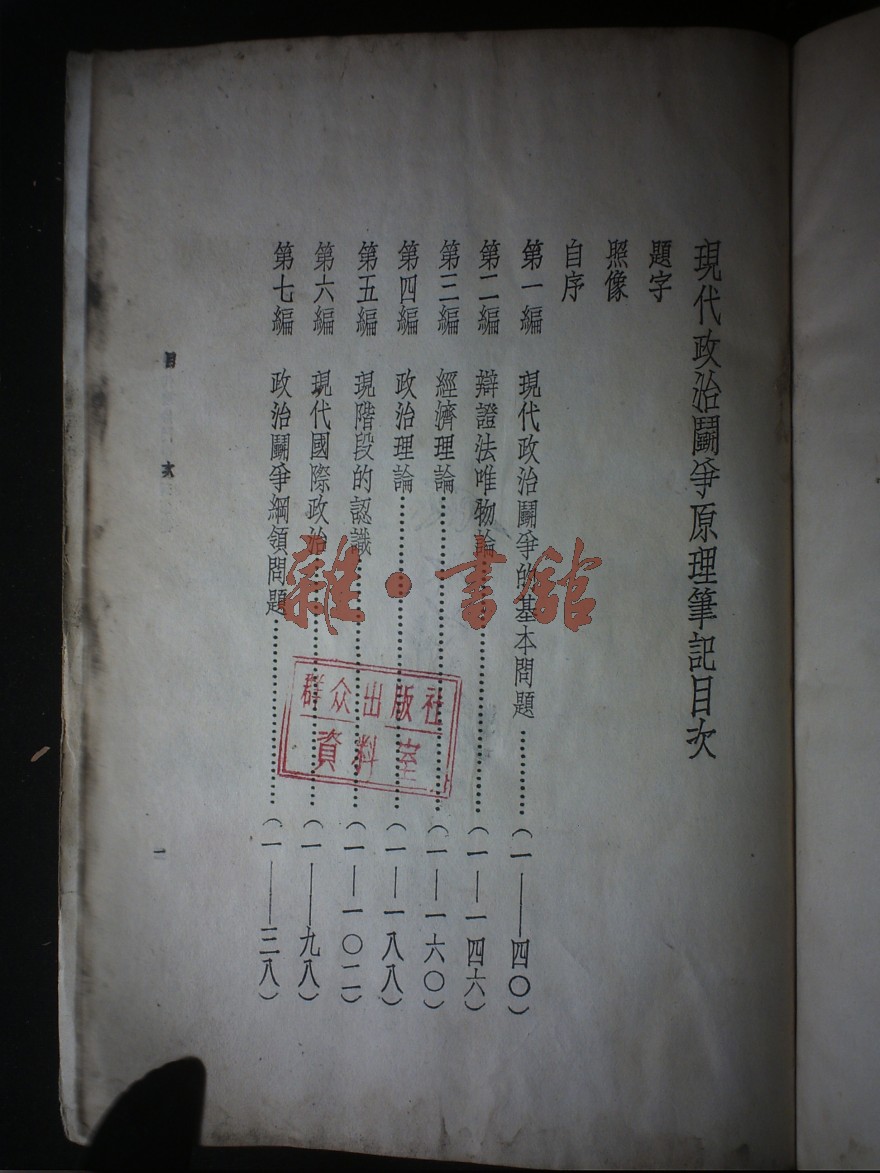 現代政治鬭爭原理筆記目次
題字
照像
自序
第一編 現代政治鬭爭的基本問題…………(一——四〇)
第二編 辯證法唯物論…………(一—一四六)
第三編 經濟理論…………(一—一六〇)
第四編 政治理論…………(一—一八八)
第五編 現階段的認識…………(一—一〇二)
第六編 現代國際政治…………(一——九八)
第七編 政治鬭爭綱領問題…………(一——三八)
目次
一
雜·書館
群众出版社
資料室